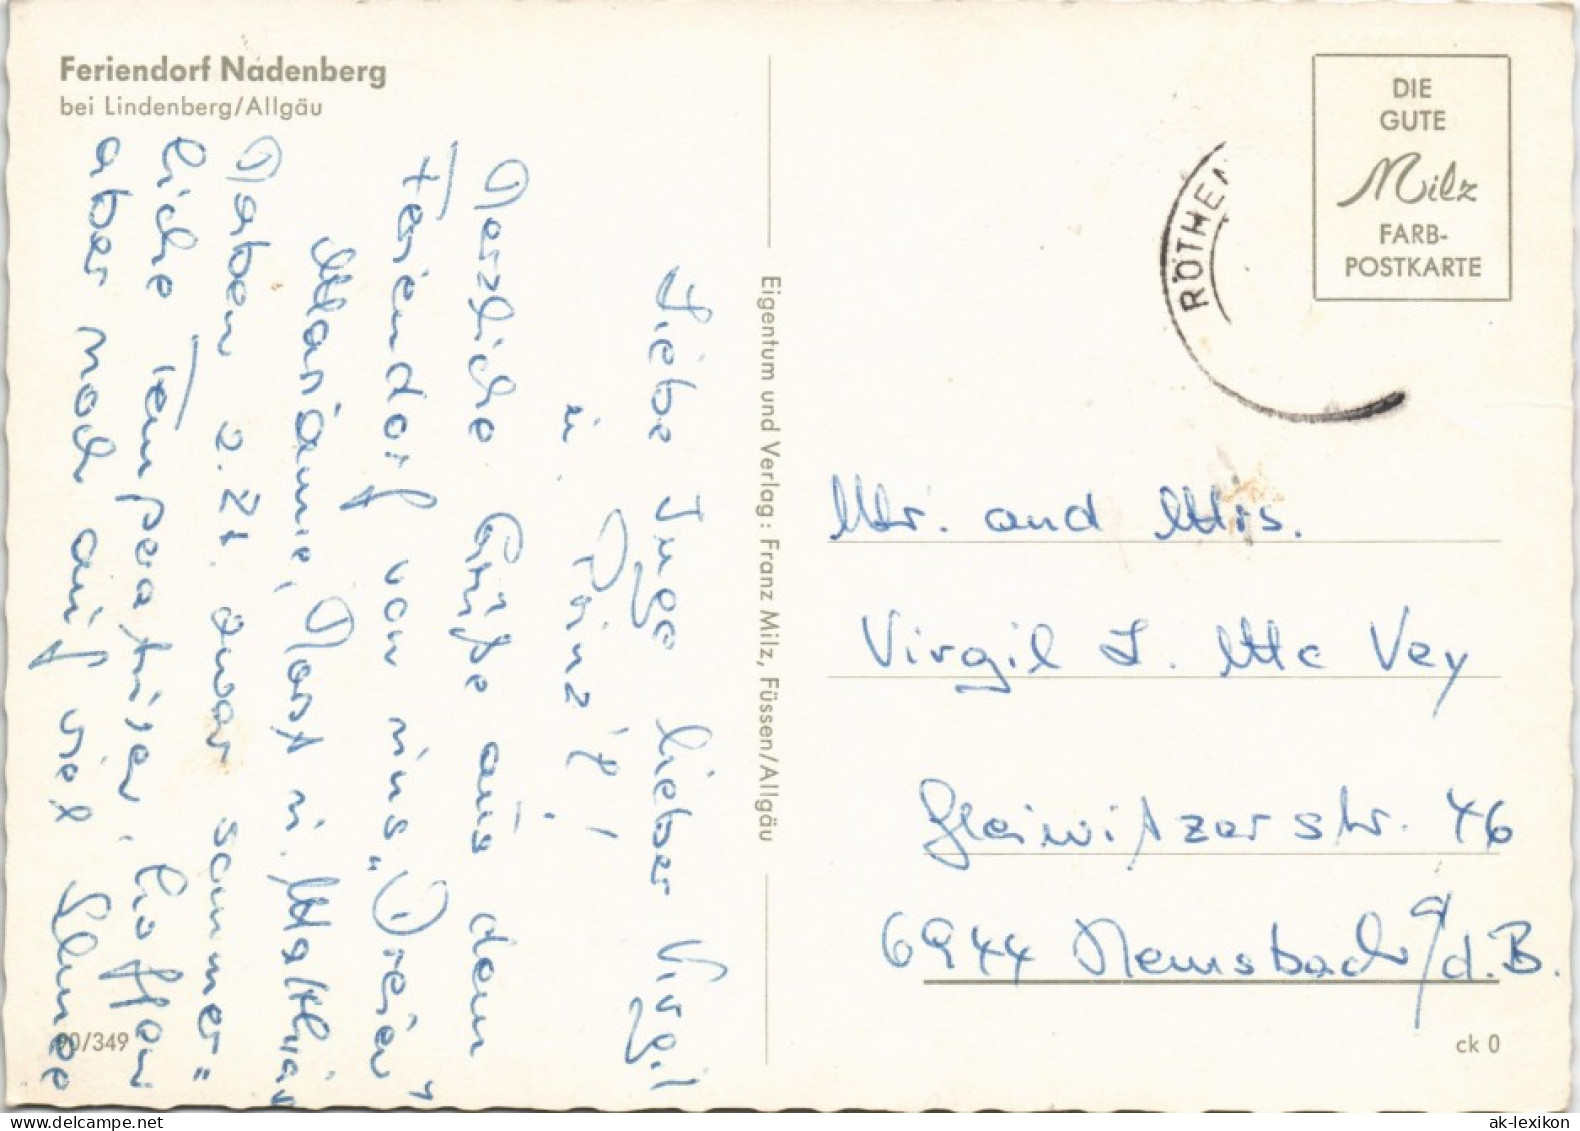 Feriendorf Nadenberg
bei Lindenberg/Allgäu
Liebe Inge lieber Virgil
u. Prinz'l!
Herzliche Grüße aus dem
Feriendorf von uns „Dreien"
Marianne, Horst u. Matthias
Haben z. Zt. zwar „sommer"
liche Temperaturen, hoffen
aber noch auf viel Schnee
90/349
Eigentum und Verlag: Franz Milz, Füssen/Allgäu
RÖTHEN
DIE
GUTE
Milz
FARB-
POSTKARTE
Mr. and Mrs.
Virgil L. Mc Vey
Gleiwitzerstr. 46
6944 Hemsbach a/d. B.
ck 0
ak-lexikon